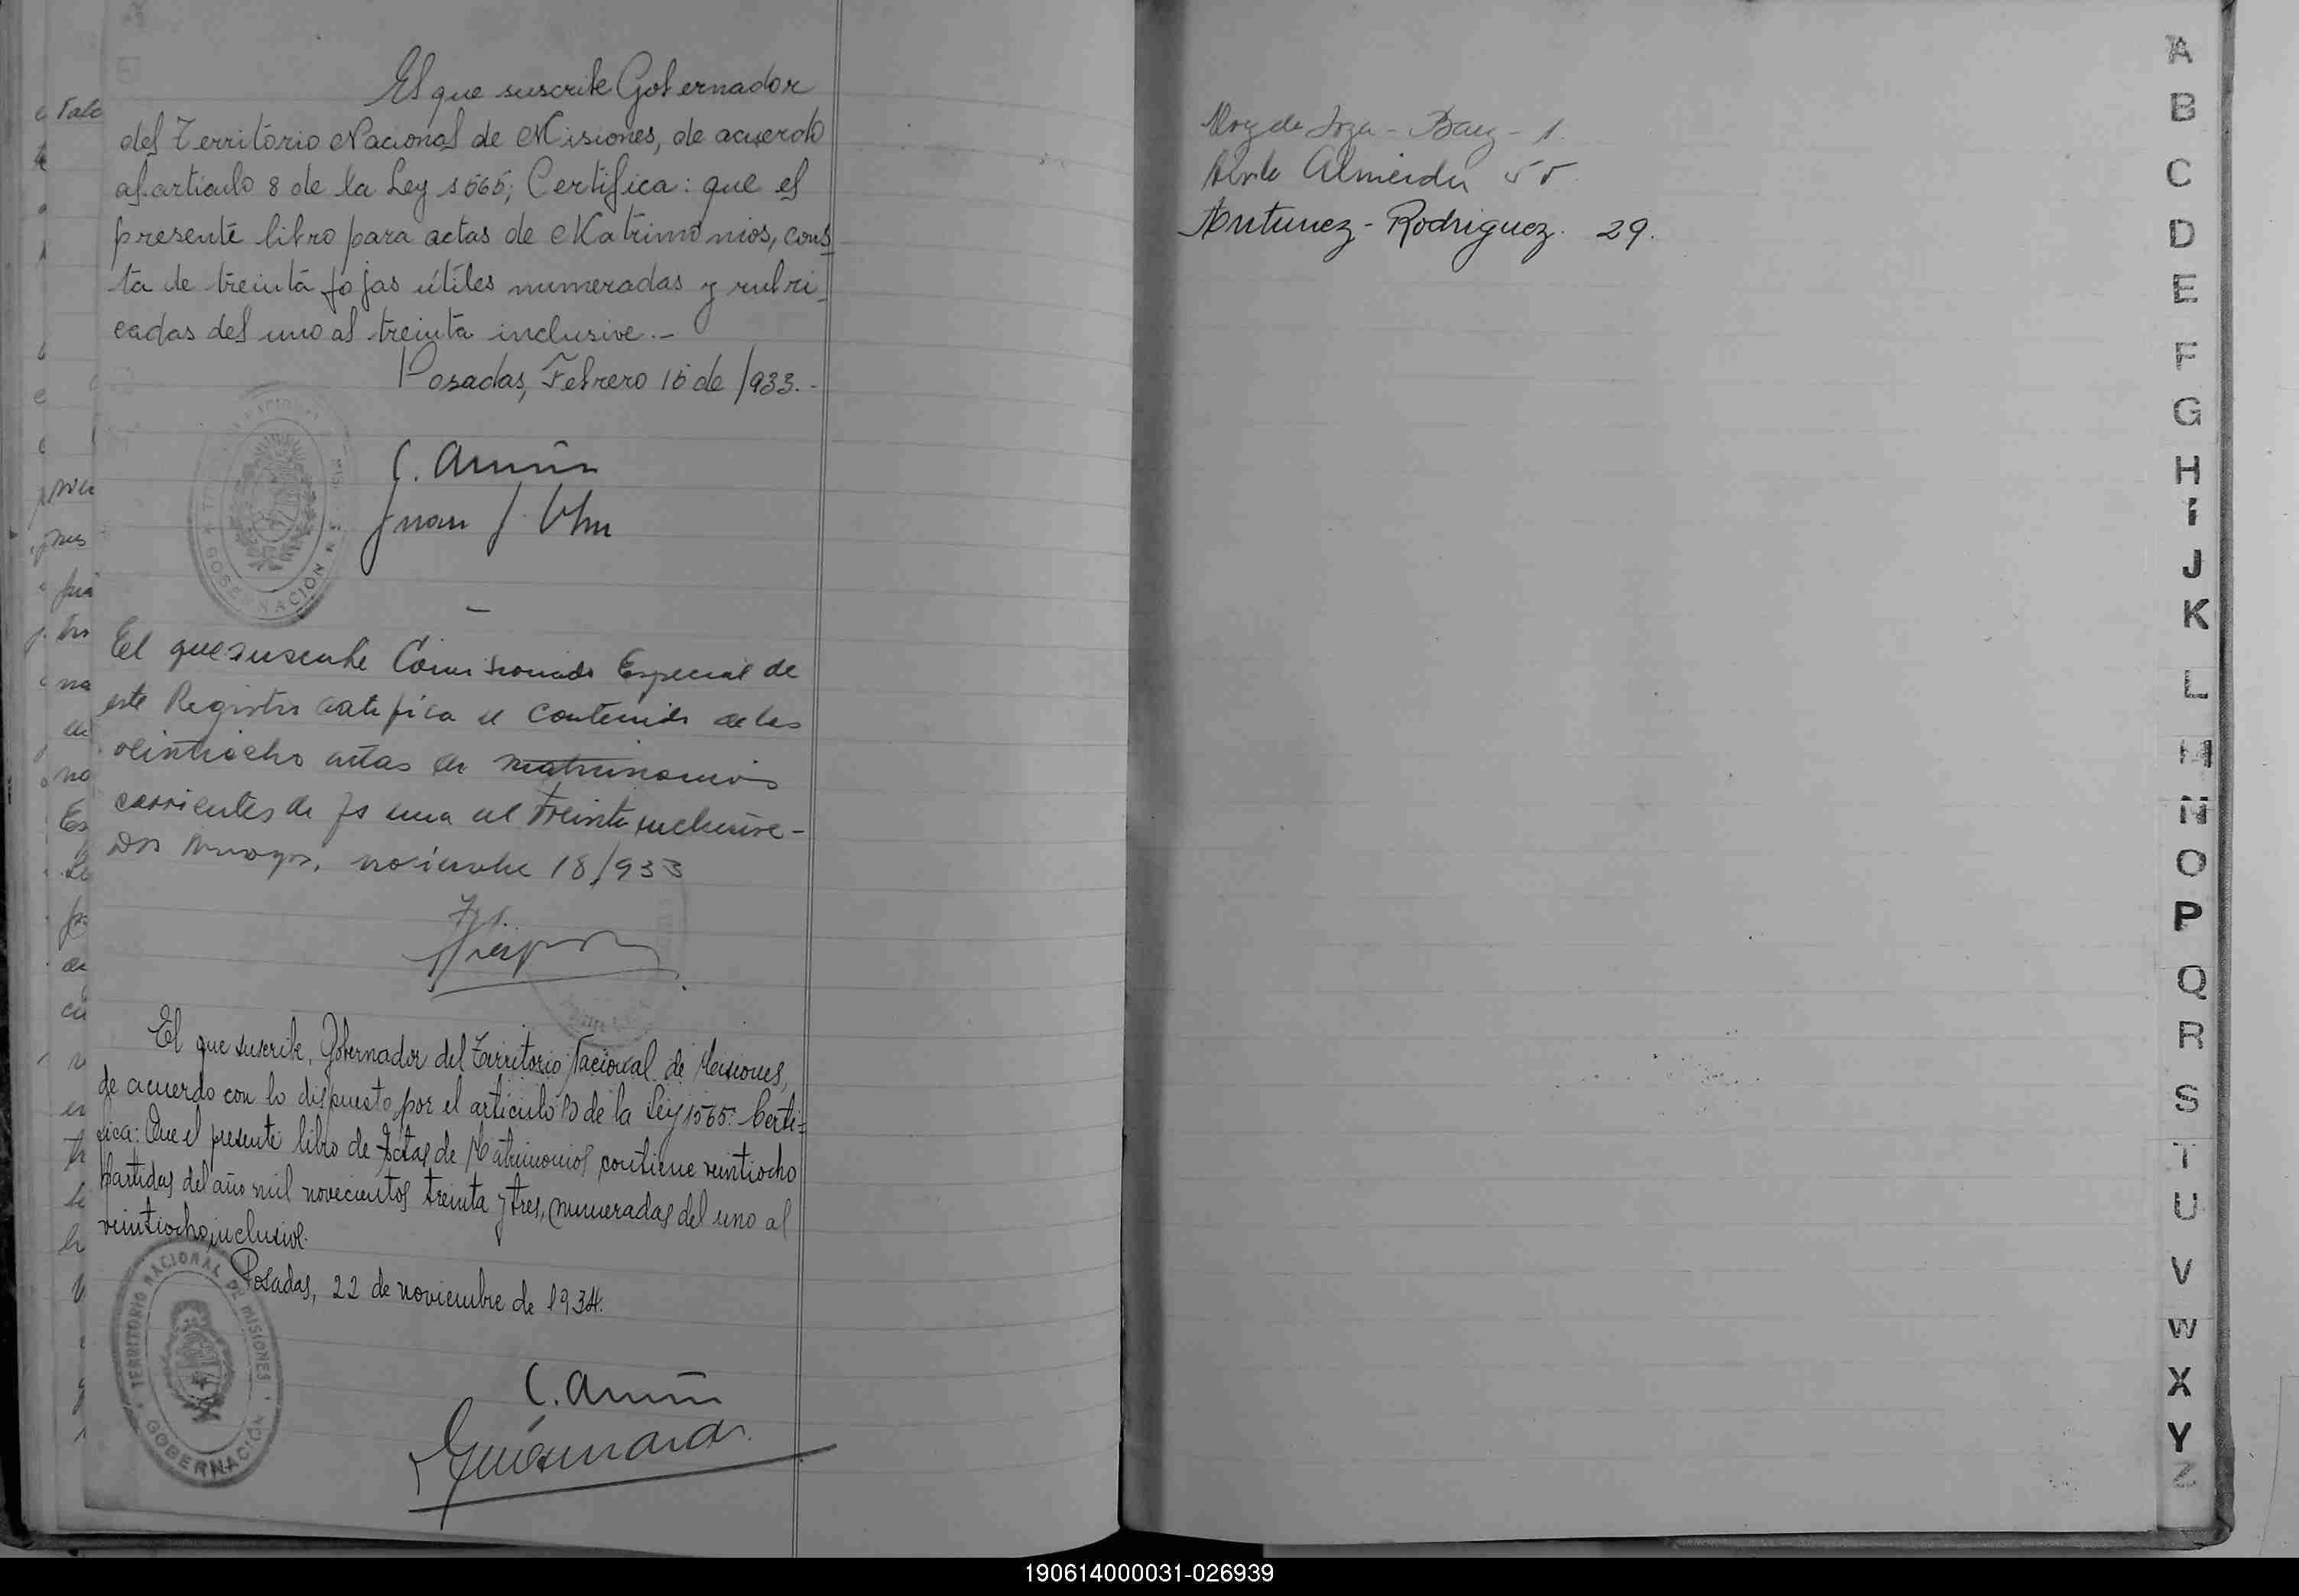 El que suscribe Gobernador
del Territorio Nacional de Misiones, de acuerdo
al articulo 8 de la Ley 1565; Certifica: que el
presente libro para actas de Matrimonios, cons_
ta de treinta fojas útiles numeradas y rubri_
cadas del uno al treinta inclusive.-
Posadas, Febrero 15 de /933.-
El que suscribe Comisionado Especial de
este Registro certifica el contenido de las
veintiocho actas de matrimonios
corrientes de fs una al treinta inclusive-
Dos Arroyos, noviembre 18/933
El que suscribe, Gobernador del Territorio Nacional de Misiones,
de acuerdo con lo dispuesto por el articulo de la Ley 1565: Certi=
fica: Que el presente libro de Actas de Matrimonios, contiene veintiocho
partidas del año mil novecientos treinta y tres, numeradas del uno al
veintiocho inclusive.
Posadas, 22 de noviembre de 1934.
TERRITORIO NACIONAL DE MISIONES
GOBERNACIÓN
Baez - 1.
Almeida
Antunez - Rodriguez. 29.
A
B
C
D
E
F
G
H
I
J
K
L
M
N
O
P
Q
R
S
T
U
V
W
X
Y
Z
190614000031-026939